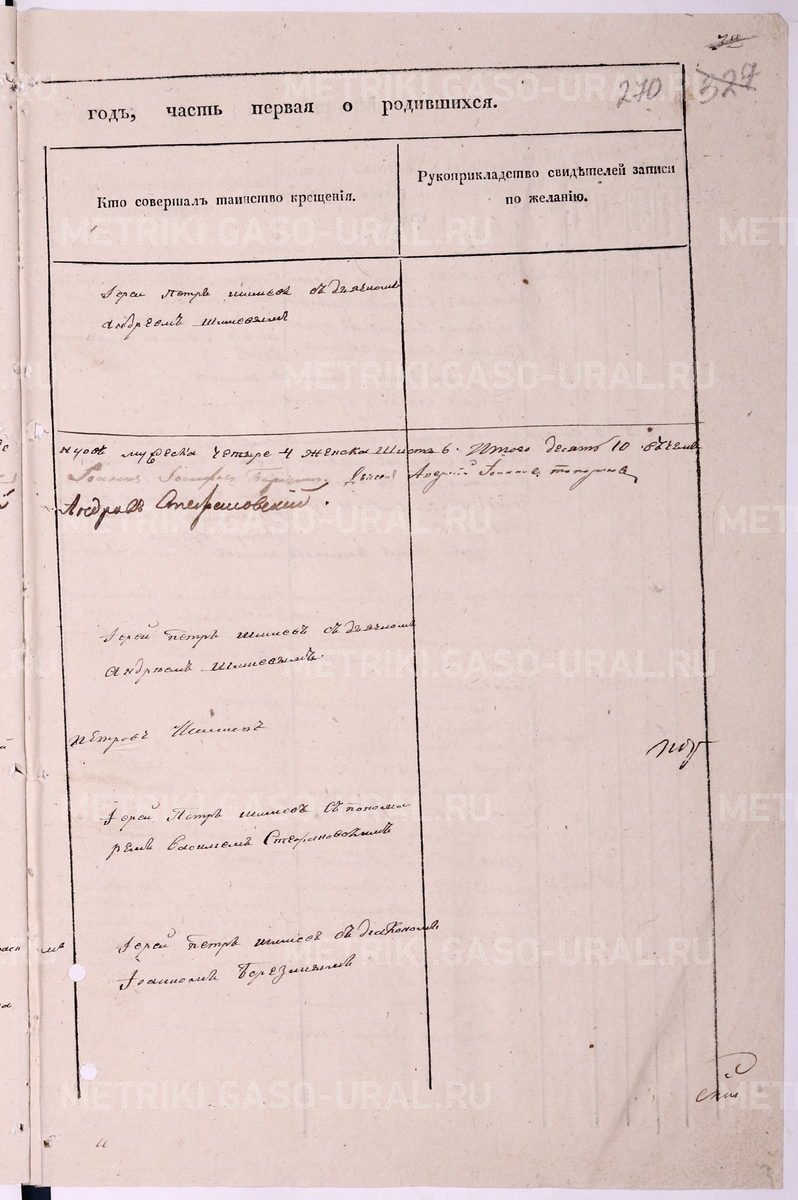 270
327
годъ, часть первая о родившихся.
Кто совершалъ таинство крещенія.
Рукоприкладство свидѣтелей записи
по желанію.
Іерей Петръ Шишевъ съ дьячкомъ
Андреемъ Шишевымъ
мужеска четыре 4 женска шесть 6. Итого десять 10. въ чемъ
Іоаннъ Дьячекъ Андрей
Андрей Стефановскій.
Іерей Петръ Шишевъ съ дьячкомъ
Андреемъ Шишевымъ.
Петровъ Шишевъ
Іерей Петръ Шишевъ съ понома
ремъ Василемъ Стефановскимъ
Іерей Петръ Шишевъ съ діакономъ
Іоанномъ Березинымъ
METRIKI.GASO-URAL.RU